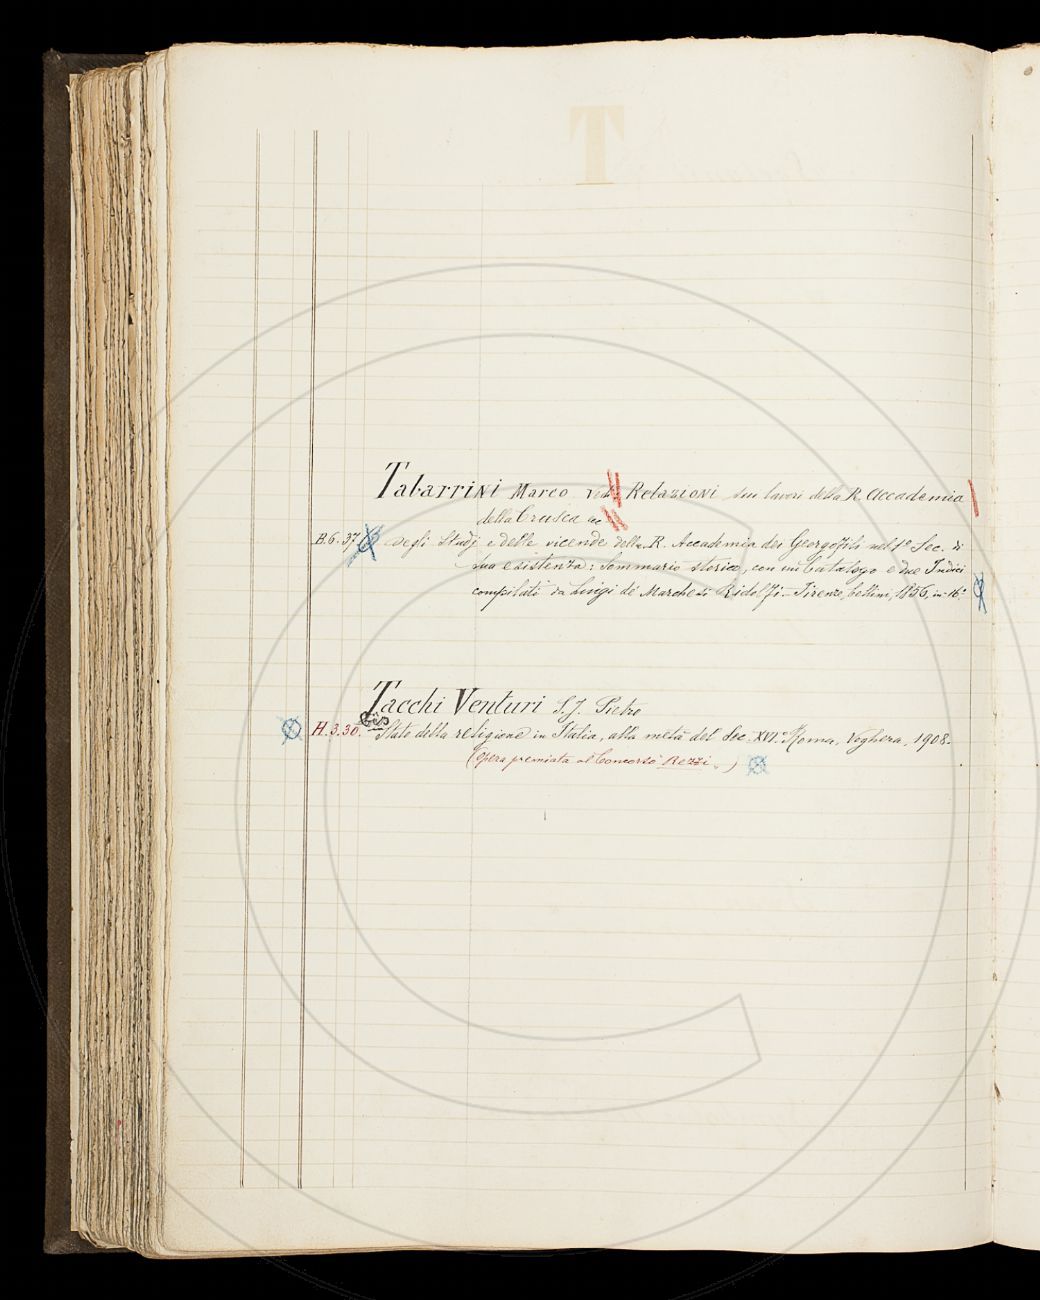 T
Tabarrini Marco Vedi Relazioni sui lavori della R. Accademia
della Crusca ec
B. 6. 37 Degli Studj e delle vicende della R. Accademia dei Georgofili nel 1º Sec. di
sua esistenza: Sommario storico, con un Catalogo e due Indici
compilati da Luigi de' Marchesi Ridolfi - Firenze, Cellini, 1856, in-16º
Tacchi Venturi S.J. Pietro
H. 3. 30. bis Stato della religione in Italia, alla metà del Sec. XVIº Roma, Voghera, 1908.
(Opera premiata al Concorso Rezzi.)